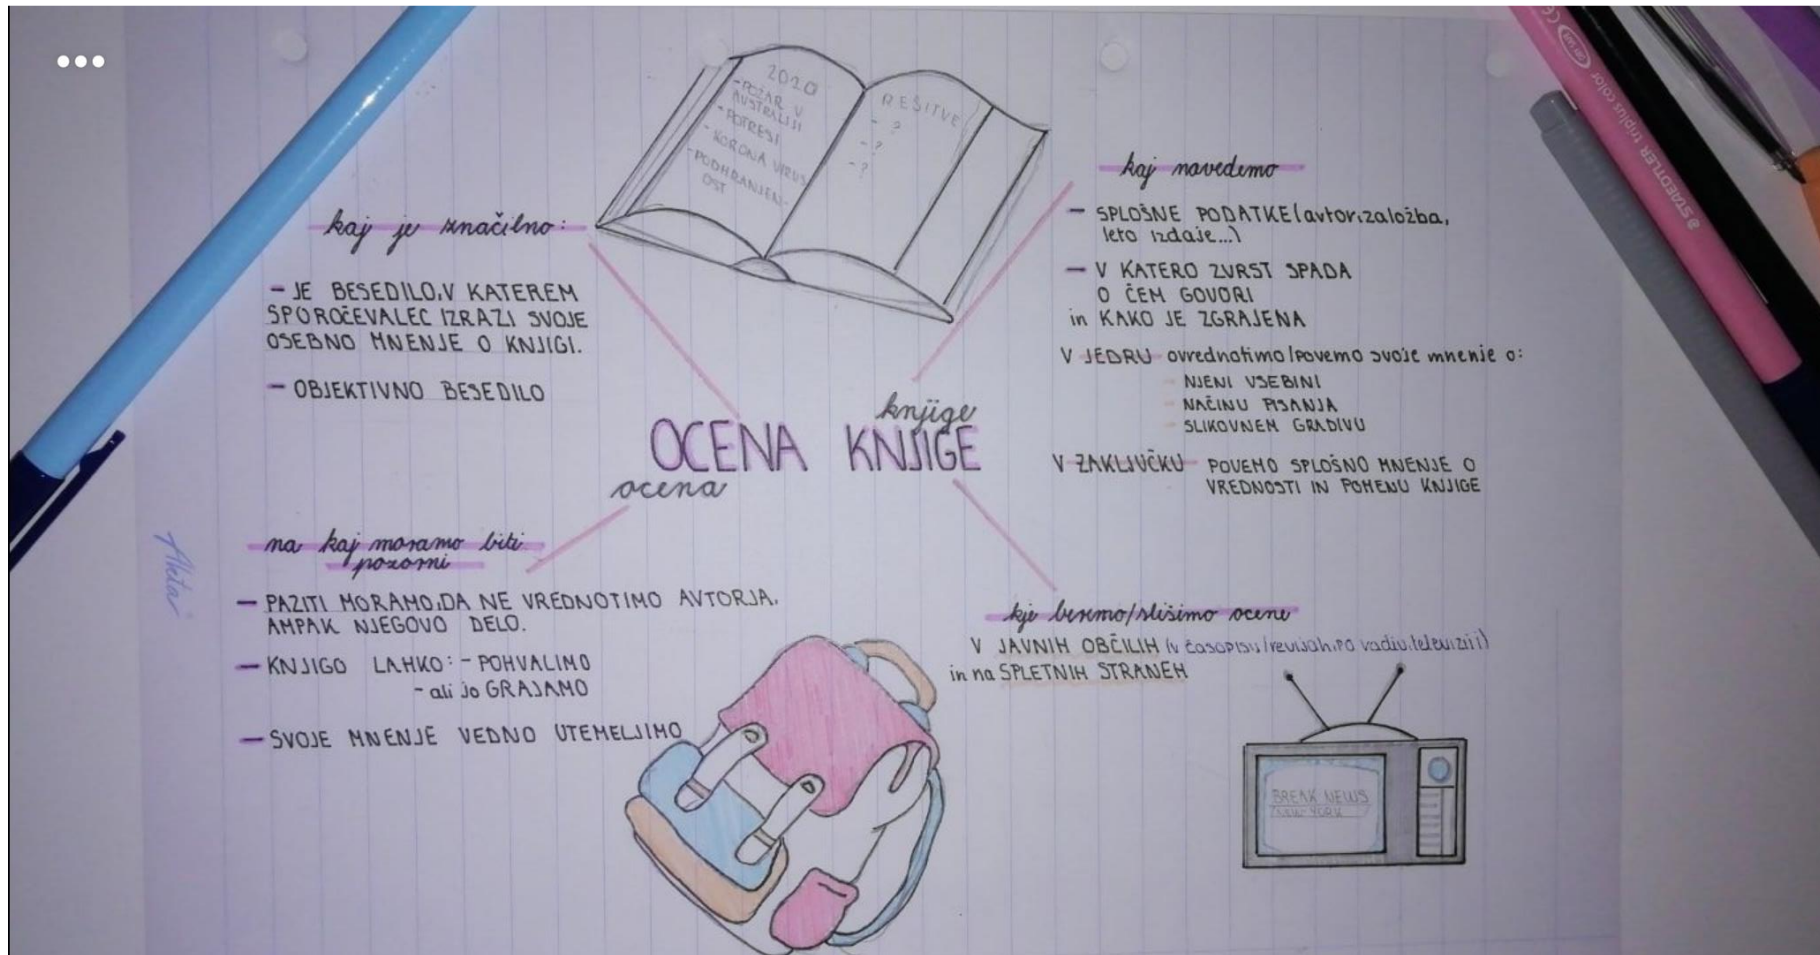 2020
- POŽAR V
AUSTRALIJI
- POTRESI
- KORONA VIRUS
- PODHRANJEN-
OST
REŠITVE
- ?
- ?
- ?
kaj je značilno:
- JE BESEDILO, V KATEREM
SPOROČEVALEC IZRAZI SVOJE
OSEBNO MNENJE O KNJIGI.
- OBJEKTIVNO BESEDILO
kaj navedemo
- SPLOŠNE PODATKE (avtor, založba,
leto izdaje...)
- V KATERO ZVRST SPADA
O ČEM GOVORI
in KAKO JE ZGRAJENA
V JEDRU ovrednotimo/povemo svoje mnenje o:
- NJENI VSEBINI
- NAČINU PISANJA
- SLIKOVNEM GRADIVU
V ZAKLJUČKU POVEMO SPLOŠNO MNENJE O
VREDNOSTI IN POMENU KNJIGE
knjige
OCENA KNJIGE
ocena
na kaj moramo biti
pozorni
- PAZITI MORAMO, DA NE VREDNOTIMO AVTORJA,
AMPAK NJEGOVO DELO.
- KNJIGO LAHKO: - POHVALIMO
- ali jo GRAJAMO
- SVOJE MNENJE VEDNO UTEMELJIMO
kje beremo/slišimo ocene
V JAVNIH OBČILIH (v časopisu/revijah, po radiu, televiziji)
in na SPLETNIH STRANEH
BREAK NEWS
NEW-YORK
STAEDTLER triplus color